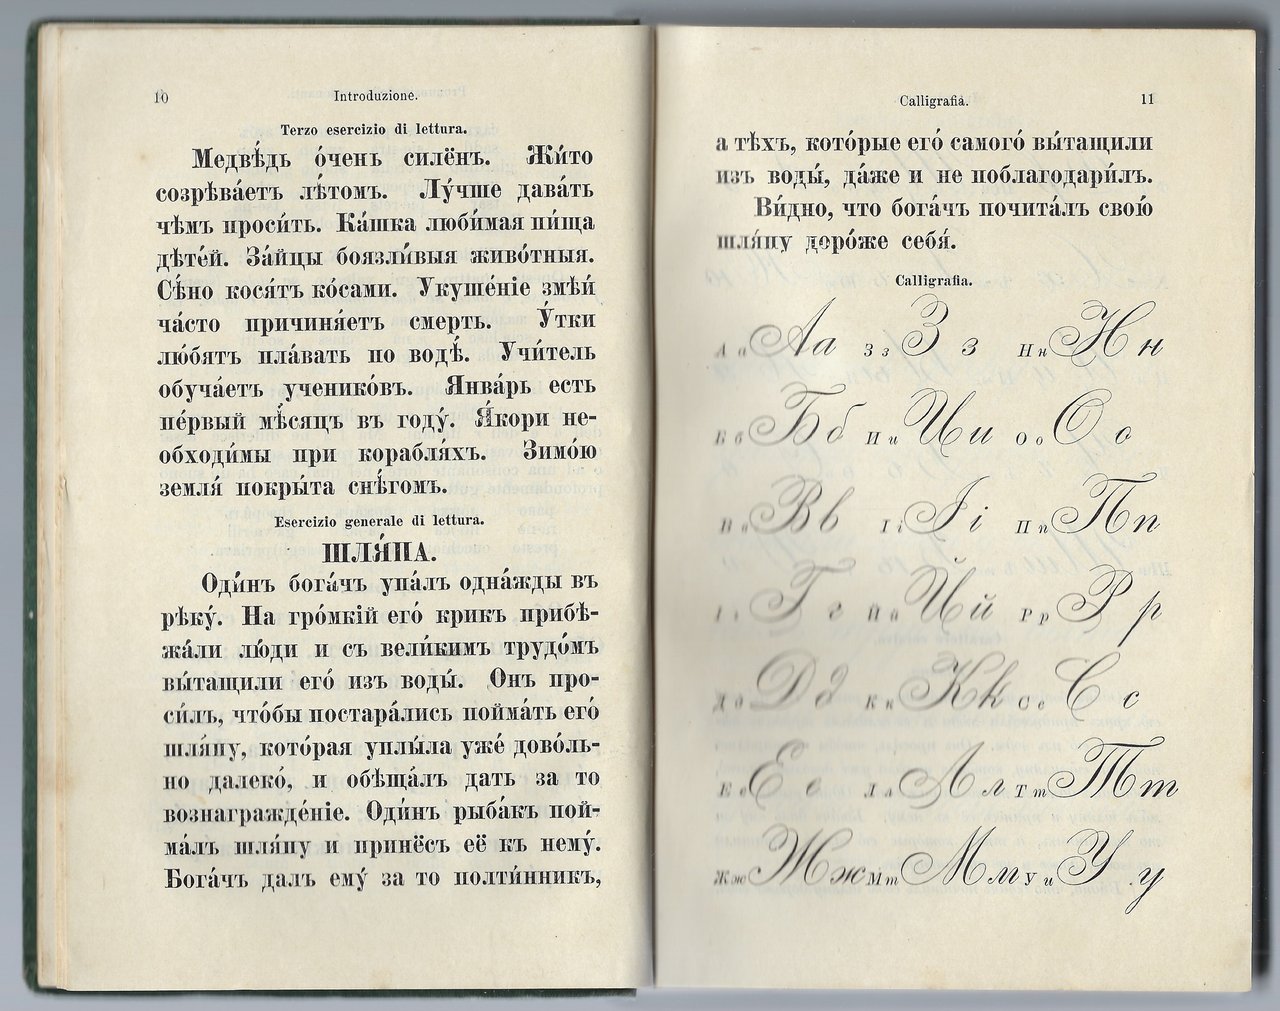 10
Introduzione.
Terzo esercizio di lettura.
Медвѣ́дь о́чень силёнъ. Жи́то
созрѣва́етъ лѣ́томъ. Лу́чше дава́ть
чѣмъ проси́ть. Ка́шка люби́мая пи́ща
дѣте́й. За́йцы боязли́выя живо́тныя.
Сѣ́но кося́тъ ко́сами. Укуше́ніе змѣи́
ча́сто причиня́етъ смерть. У́тки
лю́бятъ пла́вать по водѣ́. Учи́тель
обуча́етъ ученико́въ. Янва́рь есть
пе́рвый мѣ́сяцъ въ году́. Я́кори не-
обходи́мы при корабля́хъ. Зимо́ю
земля́ покры́та снѣ́гомъ.
Esercizio generale di lettura.
ШЛЯ́ПА.
Оди́нъ бога́чъ упа́лъ одна́жды въ
рѣку́. На гро́мкій его́ крикъ прибѣ-
жа́ли лю́ди и съ вели́кимъ трудо́мъ
вы́тащили его́ изъ воды́. Онъ про-
си́лъ, что́бы постара́лись пойма́ть его́
шля́пу, кото́рая уплы́ла уже́ дово́ль-
но далеко́, и обѣща́лъ дать за то
вознагражде́ніе. Оди́нъ рыба́къ пой-
ма́лъ шля́пу и принёсъ её къ нему́.
Бога́чъ далъ ему́ за то полти́нникъ,
Calligrafia.
11
а тѣхъ, кото́рые его́ самого́ вы́тащили
изъ воды́, да́же и не поблагодари́лъ.
Ви́дно, что бога́чъ почита́лъ свою́
шля́пу доро́же себя́.
Calligrafia.
А а Аа З з З з Н н Н н
Б б Б б И и И и О о О о
В в В в І і І і П п П п
Г г Г г Й й Й й Р р Р р
Д д Д д К к К к С с С с
Е е Е е Л л Л л Т т Т т
Ж ж Ж ж М м М м У у У у